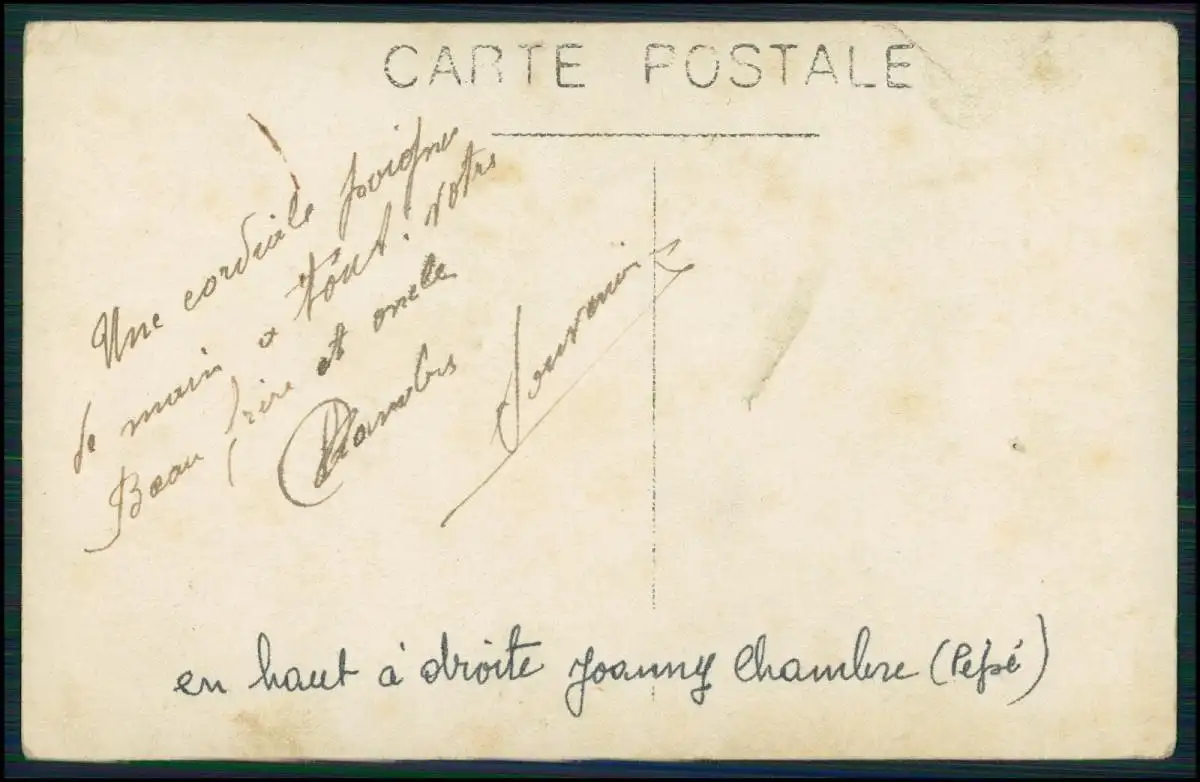 CARTE POSTALE
Une cordiale poigne
de main a tout. votre
Beau frère et oncle
Chambre Jouvenin
en haut à droite Joanny Chambre (Pépé)